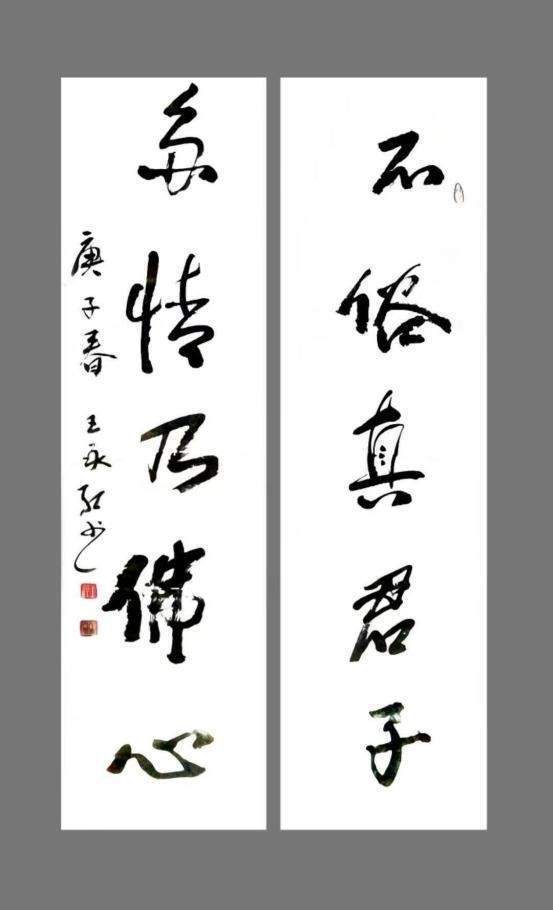 不俗真君子
多情乃佛心
庚子春 王永 书